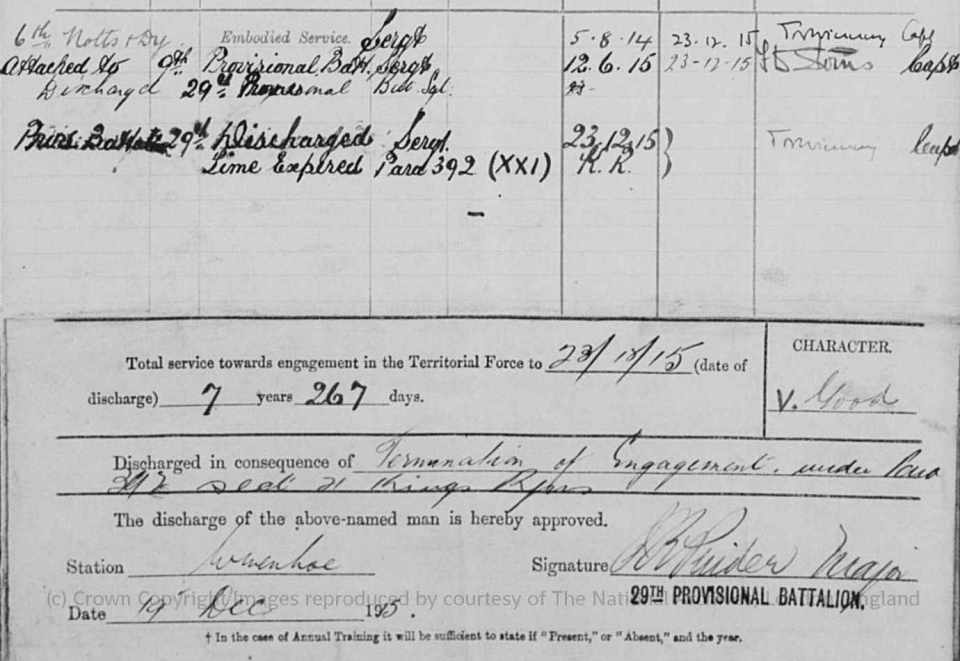 6th Notts & Dy Embodied Service. Sergt 5.8.14 23.12.15 Capt
Attached to 9th Provisional Batt. Sergt 12.6.15 23-12-15 Capt
Discharged 29th Provisional Sgt.
29th Discharged Sergt. 23.12.15 ) Capt
Time Expired Para 392 (XXI) K.R. )
Total service towards engagement in the Territorial Force to 23/12/15 (date of
discharge) 7 years 267 days.
CHARACTER.
V. Good
Discharged in consequence of Termination of Engagement. under Para
392 sect 21 Kings Regns
The discharge of the above-named man is hereby approved.
Station Wivenhoe Signature Major
29TH PROVISIONAL BATTALION.
(c) Crown Copyright/Images reproduced by courtesy of The National England
Date Dec 1915.
† In the case of Annual Training it will be sufficient to state if "Present," or "Absent," and the year.